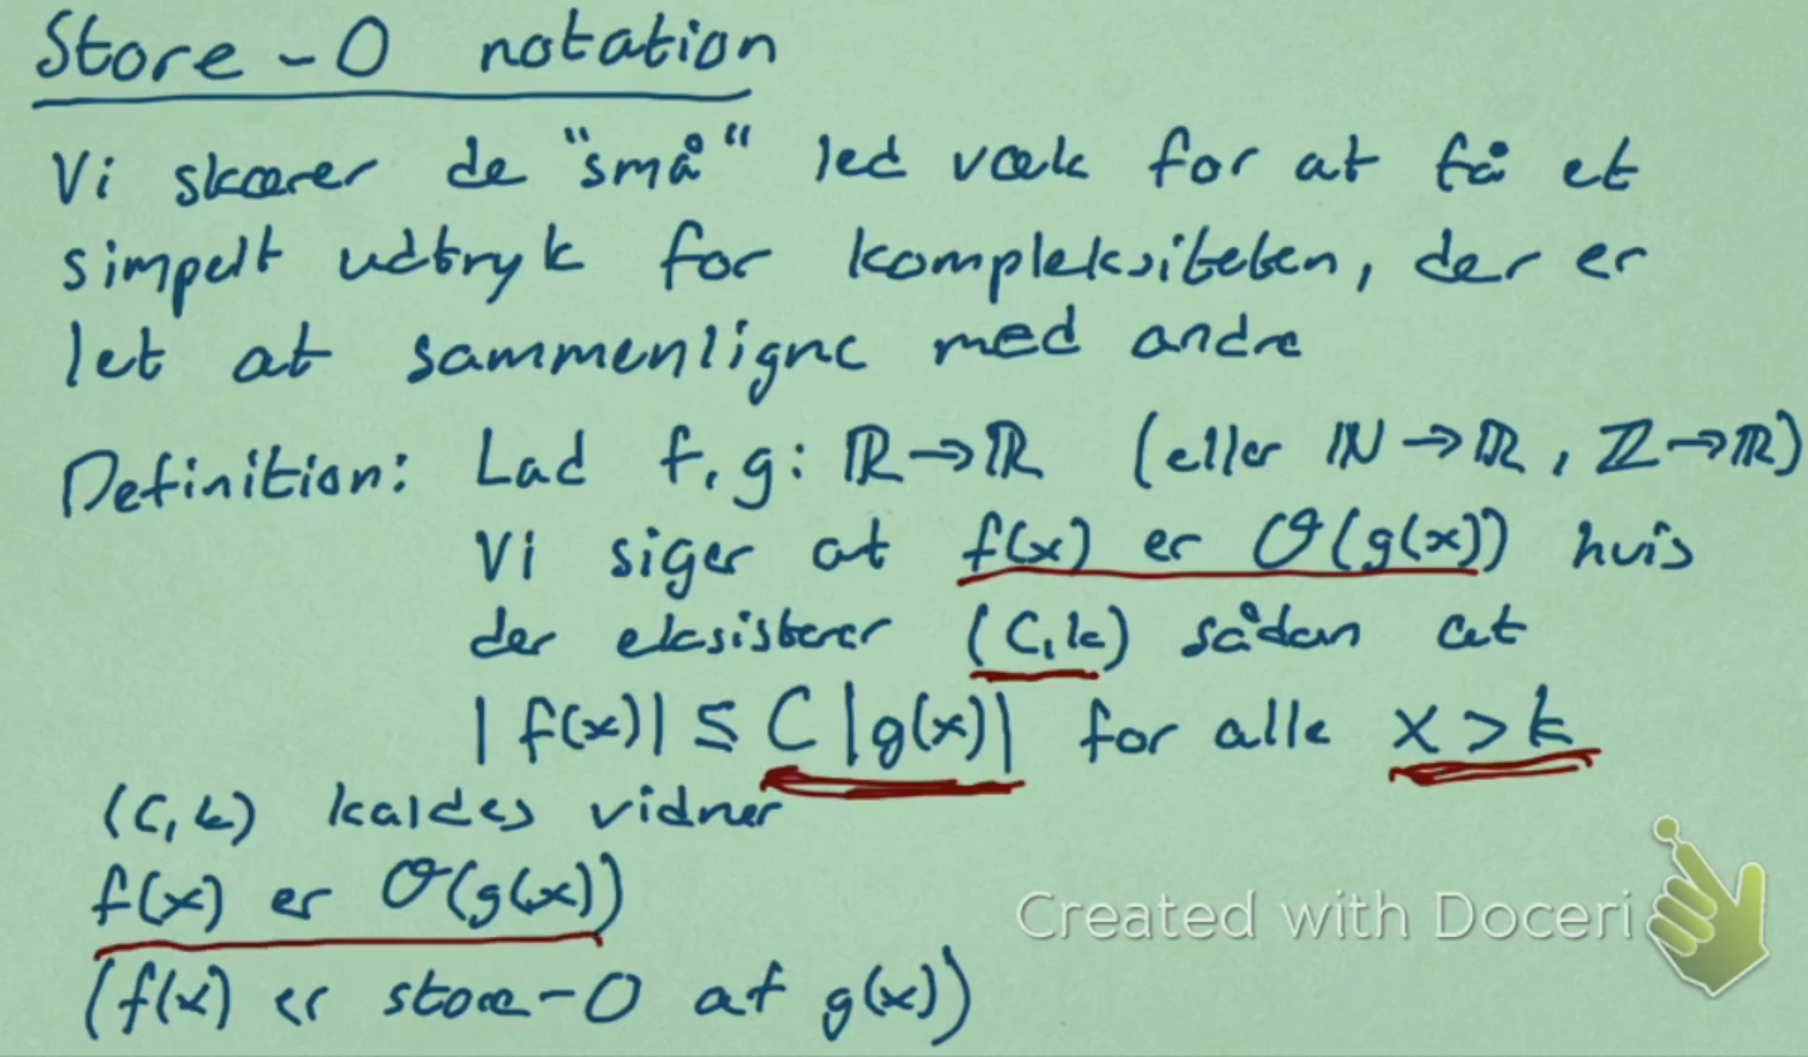 Store-O notation
Vi skærer de "små" led væk for at få et
simpelt udtryk for kompleksiteten, der er
let at sammenligne med andre
Definition: Lad f, g: ℝ→ℝ (eller ℕ→ℝ, ℤ→ℝ)
Vi siger at f(x) er O(g(x)) hvis
der eksisterer (C,k) sådan at
|f(x)| ≤ C|g(x)| for alle x>k
(C,k) kaldes vidner
f(x) er O(g(x))
(f(x) er store-O af g(x))
Created with Doceri